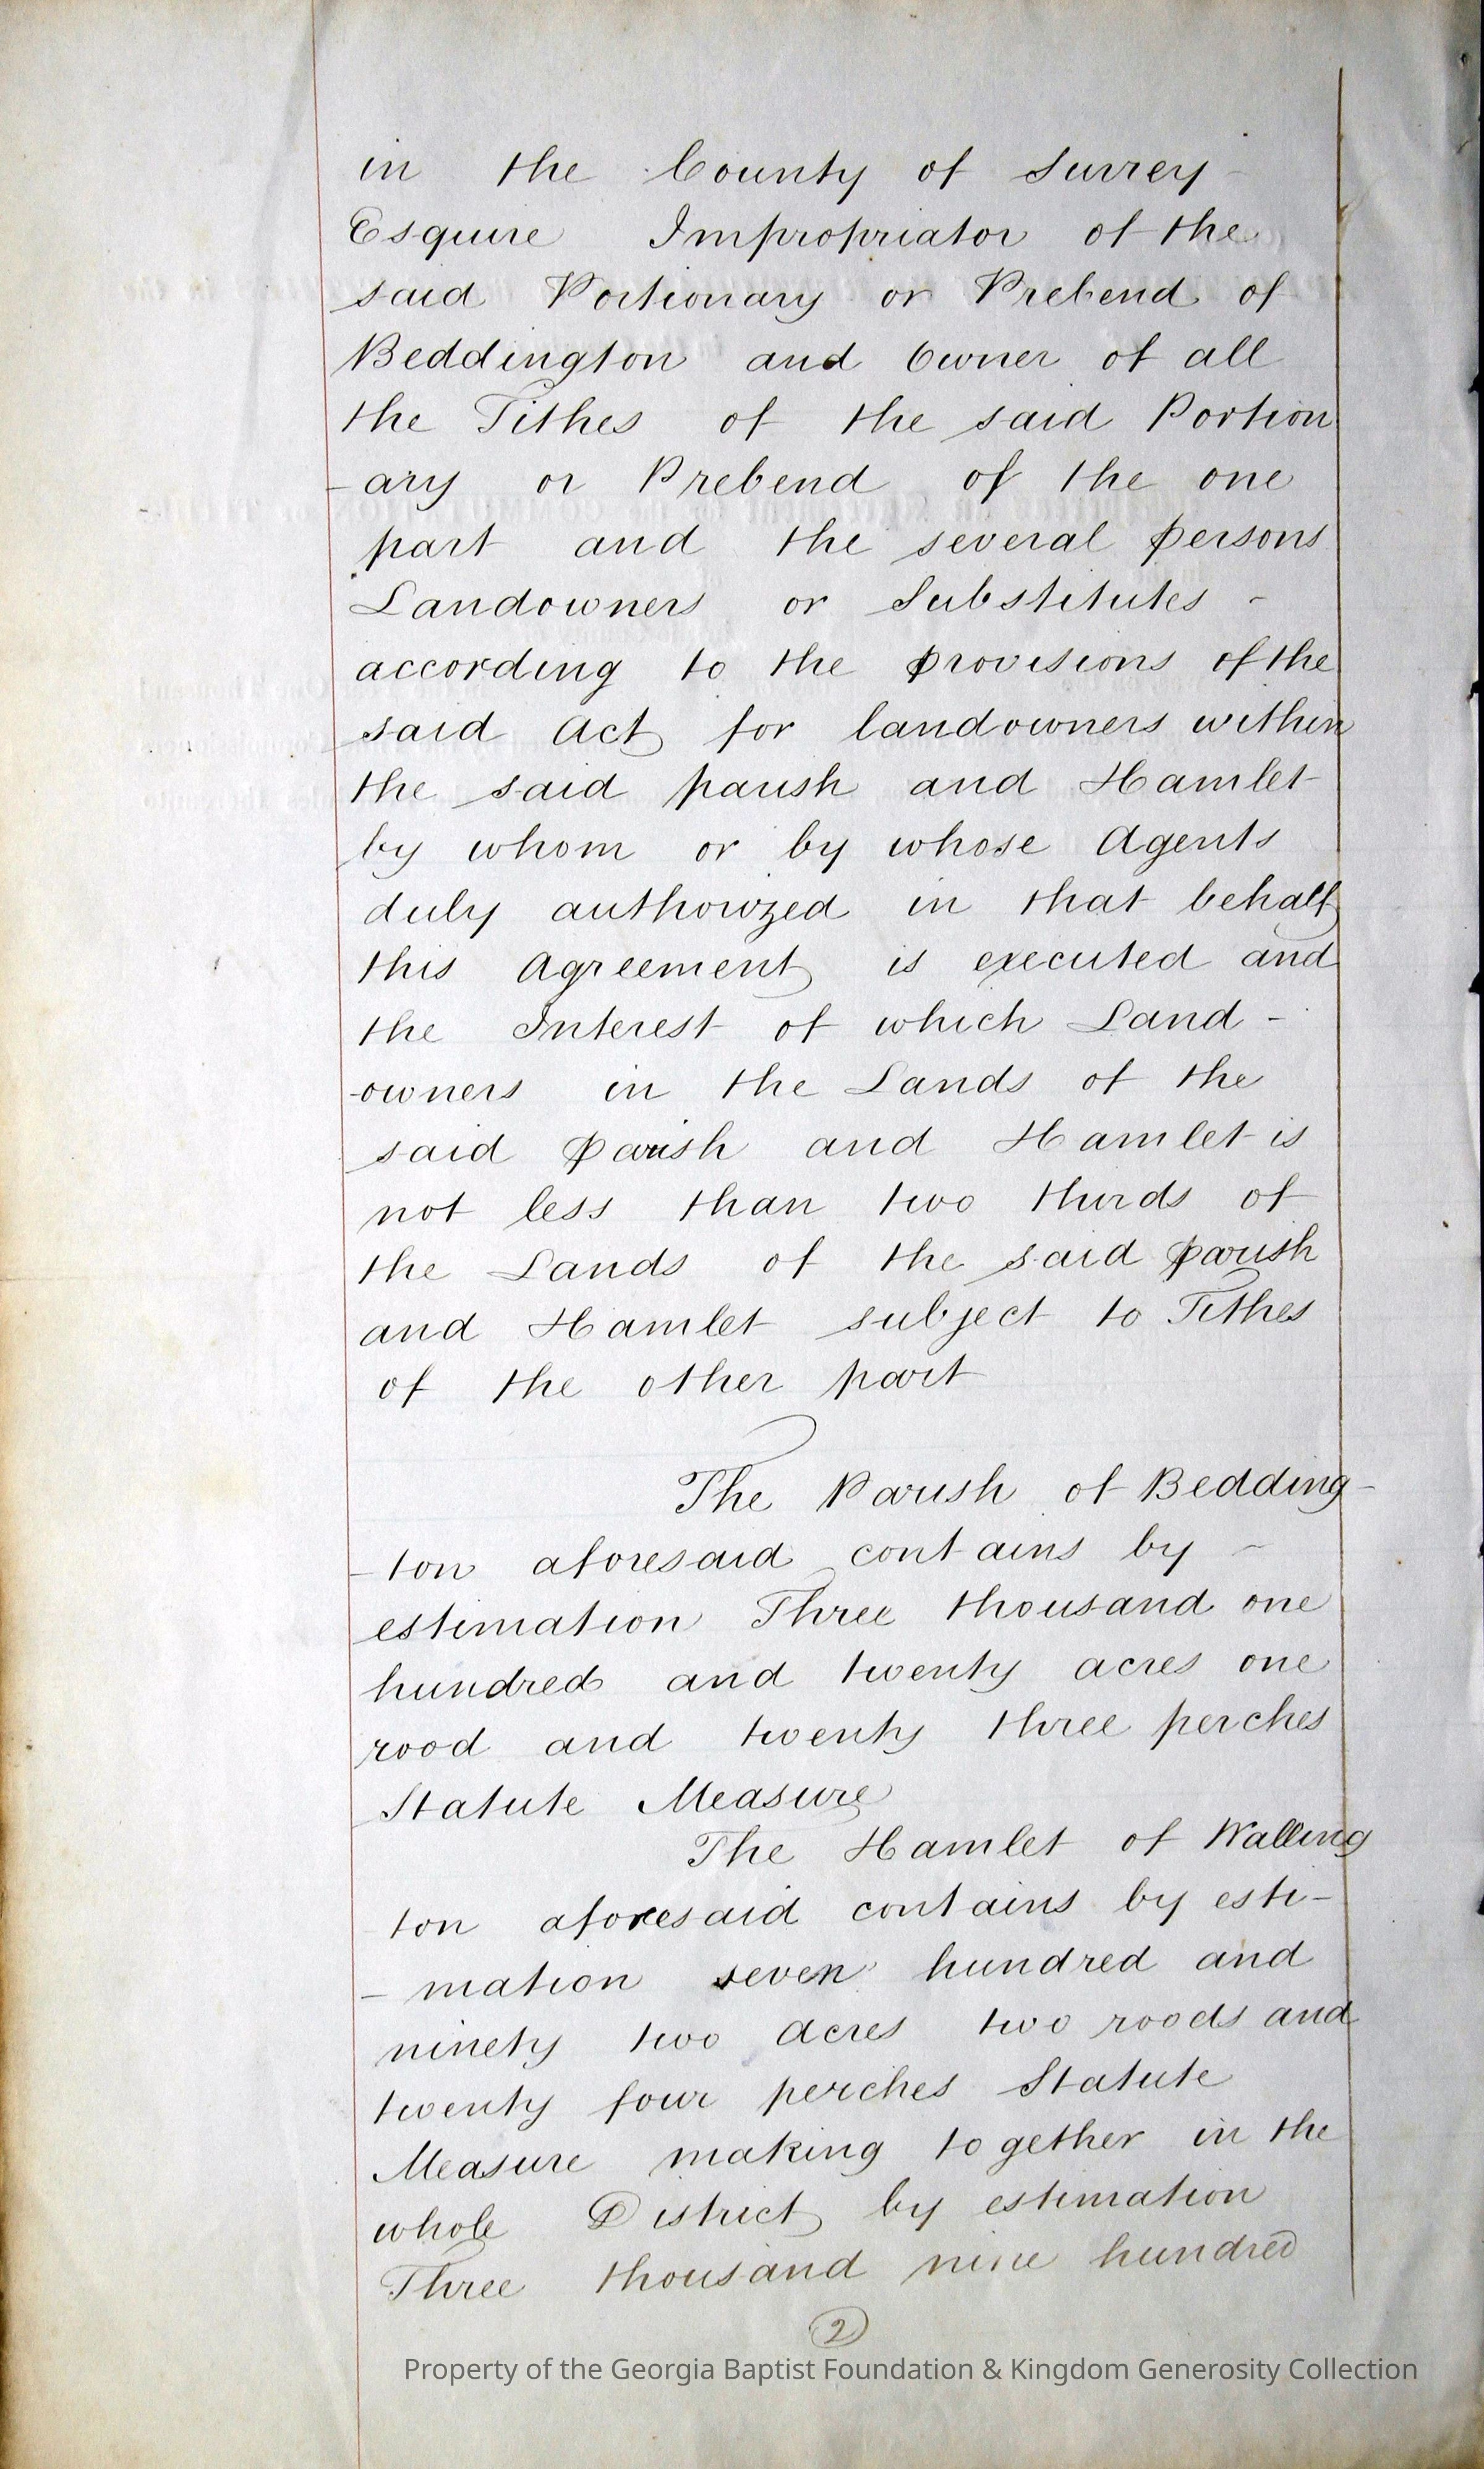 in the County of Surrey -
Esquire Impropriator of the
said Portionary or Prebend of
Beddington and Owner of all
the Tithes of the said Portion
-ary or Prebend of the one
part and the several persons
Landowners or Substitutes -
according to the provisions of the
said Act for landowners within
the said parish and Hamlet
by whom or by whose Agents
duly authorized in that behalf
this Agreement is executed and
the Interest of which Land -
-owners in the Lands of the
said Parish and Hamlet is
not less than two thirds of
the Lands of the said Parish
and Hamlet subject to Tithes
of the other part
The Parish of Bedding-
-ton aforesaid contains by -
estimation Three thousand one
hundred and twenty acres one
rood and twenty three perches
Statute Measure
The Hamlet of Walling
ton aforesaid contains by esti-
- mation seven hundred and
ninety two acres two roods and
twenty four perches Statute
Measure making together in the
whole District by estimation
Three thousand nine hundred
2
Property of the Georgia Baptist Foundation & Kingdom Generosity Collection